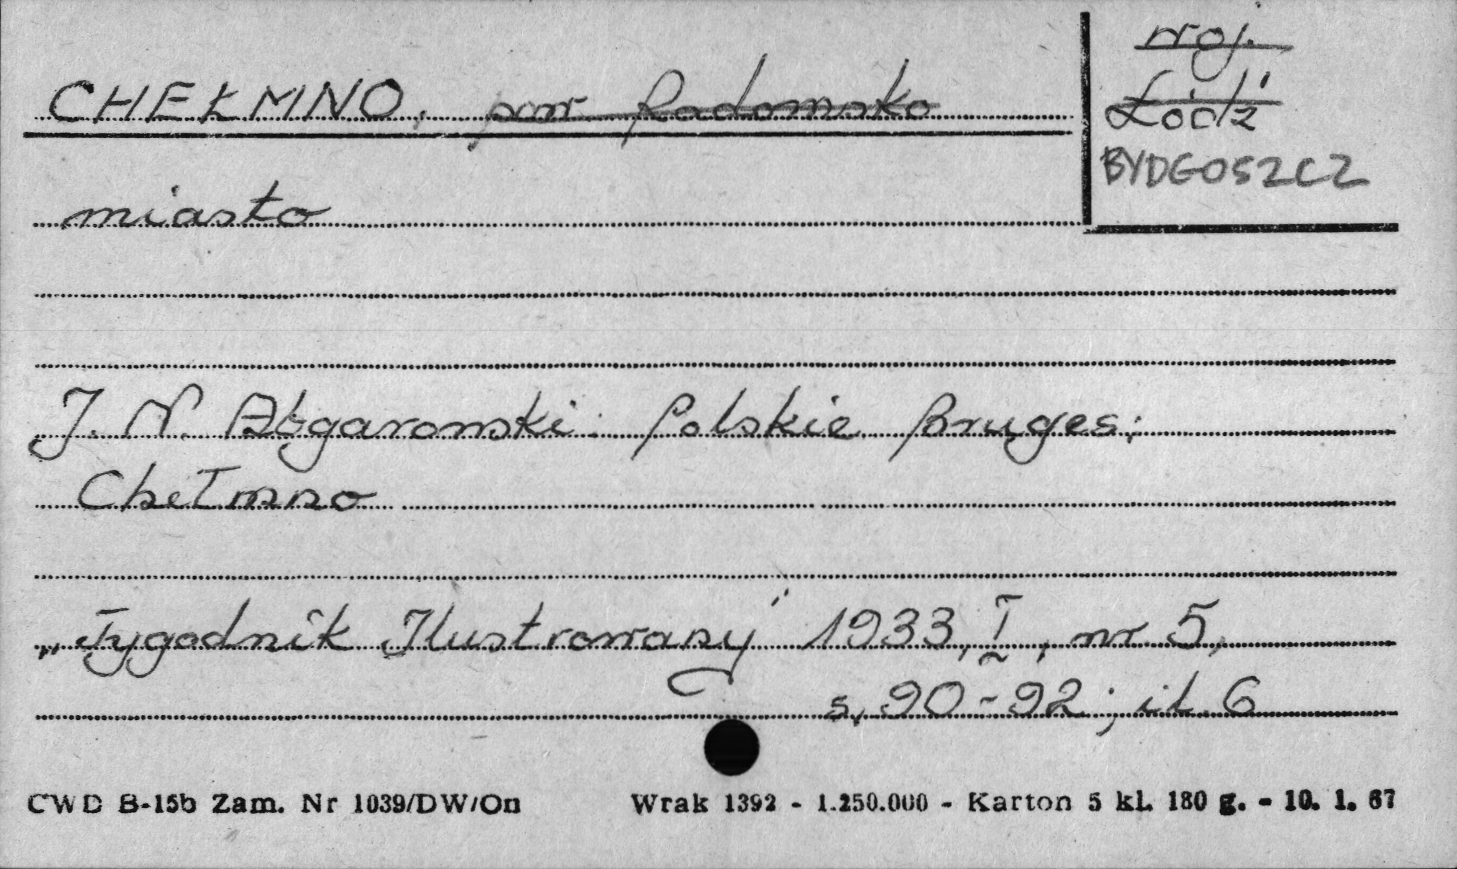 CHEŁMNO, pow Radomsko
woj.
Łódź
BYDGOSZCZ
miasto
J. N. Abgarowski: Polskie Bruges;
Chełmno
„Tygodnik Ilustrowany" 1933, I, nr 5,
s. 90-92; il. 6
CWD B-15b Zam. Nr 1039/DW/On Wrak 1392 - 1.250.000 - Karton 5 kl. 180 g. - 10. 1. 67